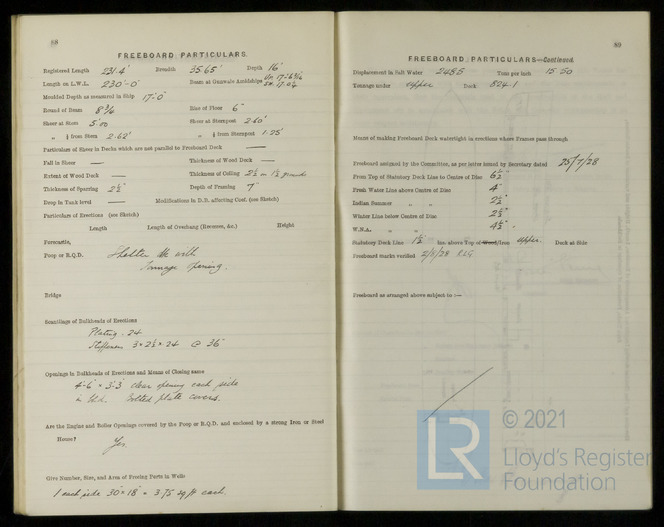 88
FREEBOARD PARTICULARS.
Registered Length 231.4' Breadth 35.65' Depth 16'
Length on L.W.L. 230'-0" Beam at Gunwale Amidships
Moulded Depth as measured in Ship 17'-0"
Round of Beam 8 3/4 Rise of Floor 6"
Sheer at Stem 5.00 Sheer at Sternpost 2.50'
" 1/8 from Stem 2.62' " 1/8 from Sternpost 1.25'
Particulars of Sheer in Decks which are not parallel to Freeboard Deck —
Fall in Sheer — Thickness of Wood Deck —
Extent of Wood Deck — Thickness of Ceiling 2½" on 1½ grounds
Thickness of Sparring 2½" Depth of Framing 7"
Drop in Tank level — Modifications in D.B. affecting Coef. (see Sketch)
Particulars of Erections (see Sketch)
Length Length of Overhang (Recesses, &c.) Height
Forecastle,
Poop or R.Q.D. Shelter dk with
Tonnage opening.
Bridge
Scantlings of Bulkheads of Erections
Plating .24
Stiffeners 3 × 2½ × 24 @ 36"
Openings in Bulkheads of Erections and Means of Closing same
4'-6" × 3'-3" clear opening each side
in bhd. Bolted plate covers.
Are the Engine and Boiler Openings covered by the Poop or R.Q.D. and enclosed by a strong Iron or Steel
House? Yes
Give Number, Size, and Area of Freeing Ports in Wells
1 each side 30" × 18" = 3.75 sq ft each.
89
FREEBOARD PARTICULARS—Continued.
Displacement in Salt Water 2485 Tons per inch 15.50
Tonnage under Upper Deck 824.1
Means of making Freeboard Deck watertight in erections where Frames pass through
Freeboard assigned by the Committee, as per letter issued by Secretary dated 25/7/28
From Top of Statutory Deck Line to Centre of Disc 6½"
Fresh Water Line above Centre of Disc 4"
Indian Summer " " 2½"
Winter Line below Centre of Disc 2½"
W.N.A. " " 4½"
Statutory Deck Line 1½ ins. above Top of Wood/Iron Upper Deck at Side
Freeboard marks verified 2/8/28
Freeboard as arranged above subject to :—
LR
© 2021
Lloyd's Register
Foundation